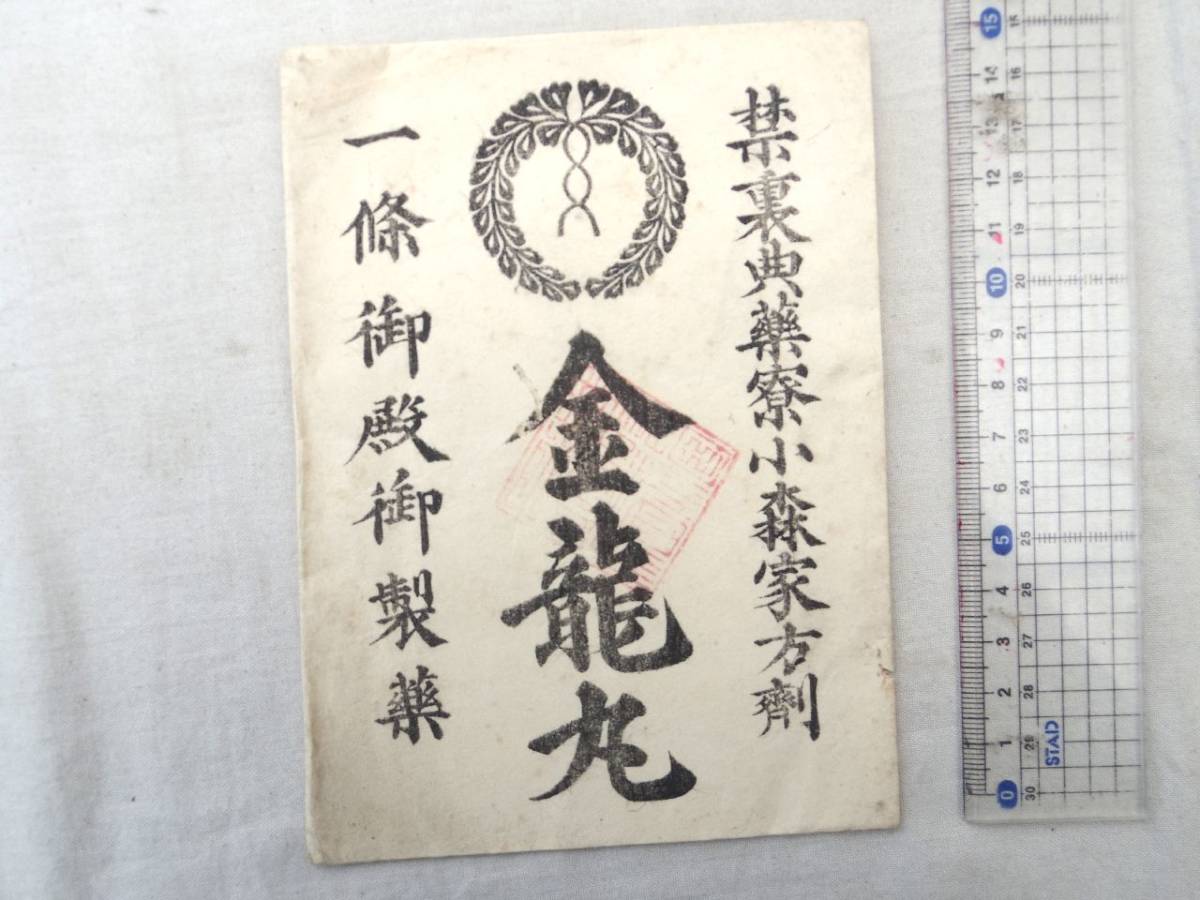 禁裏典藥寮小森家方劑
金龍丸
一條御殿御製藥
15 14 13 12 11 10 9 8 7 6 5 4 3 2 1 0
15 16 17 18 19 20 21 22 23 24 25 26 27 28 29 30
STAD